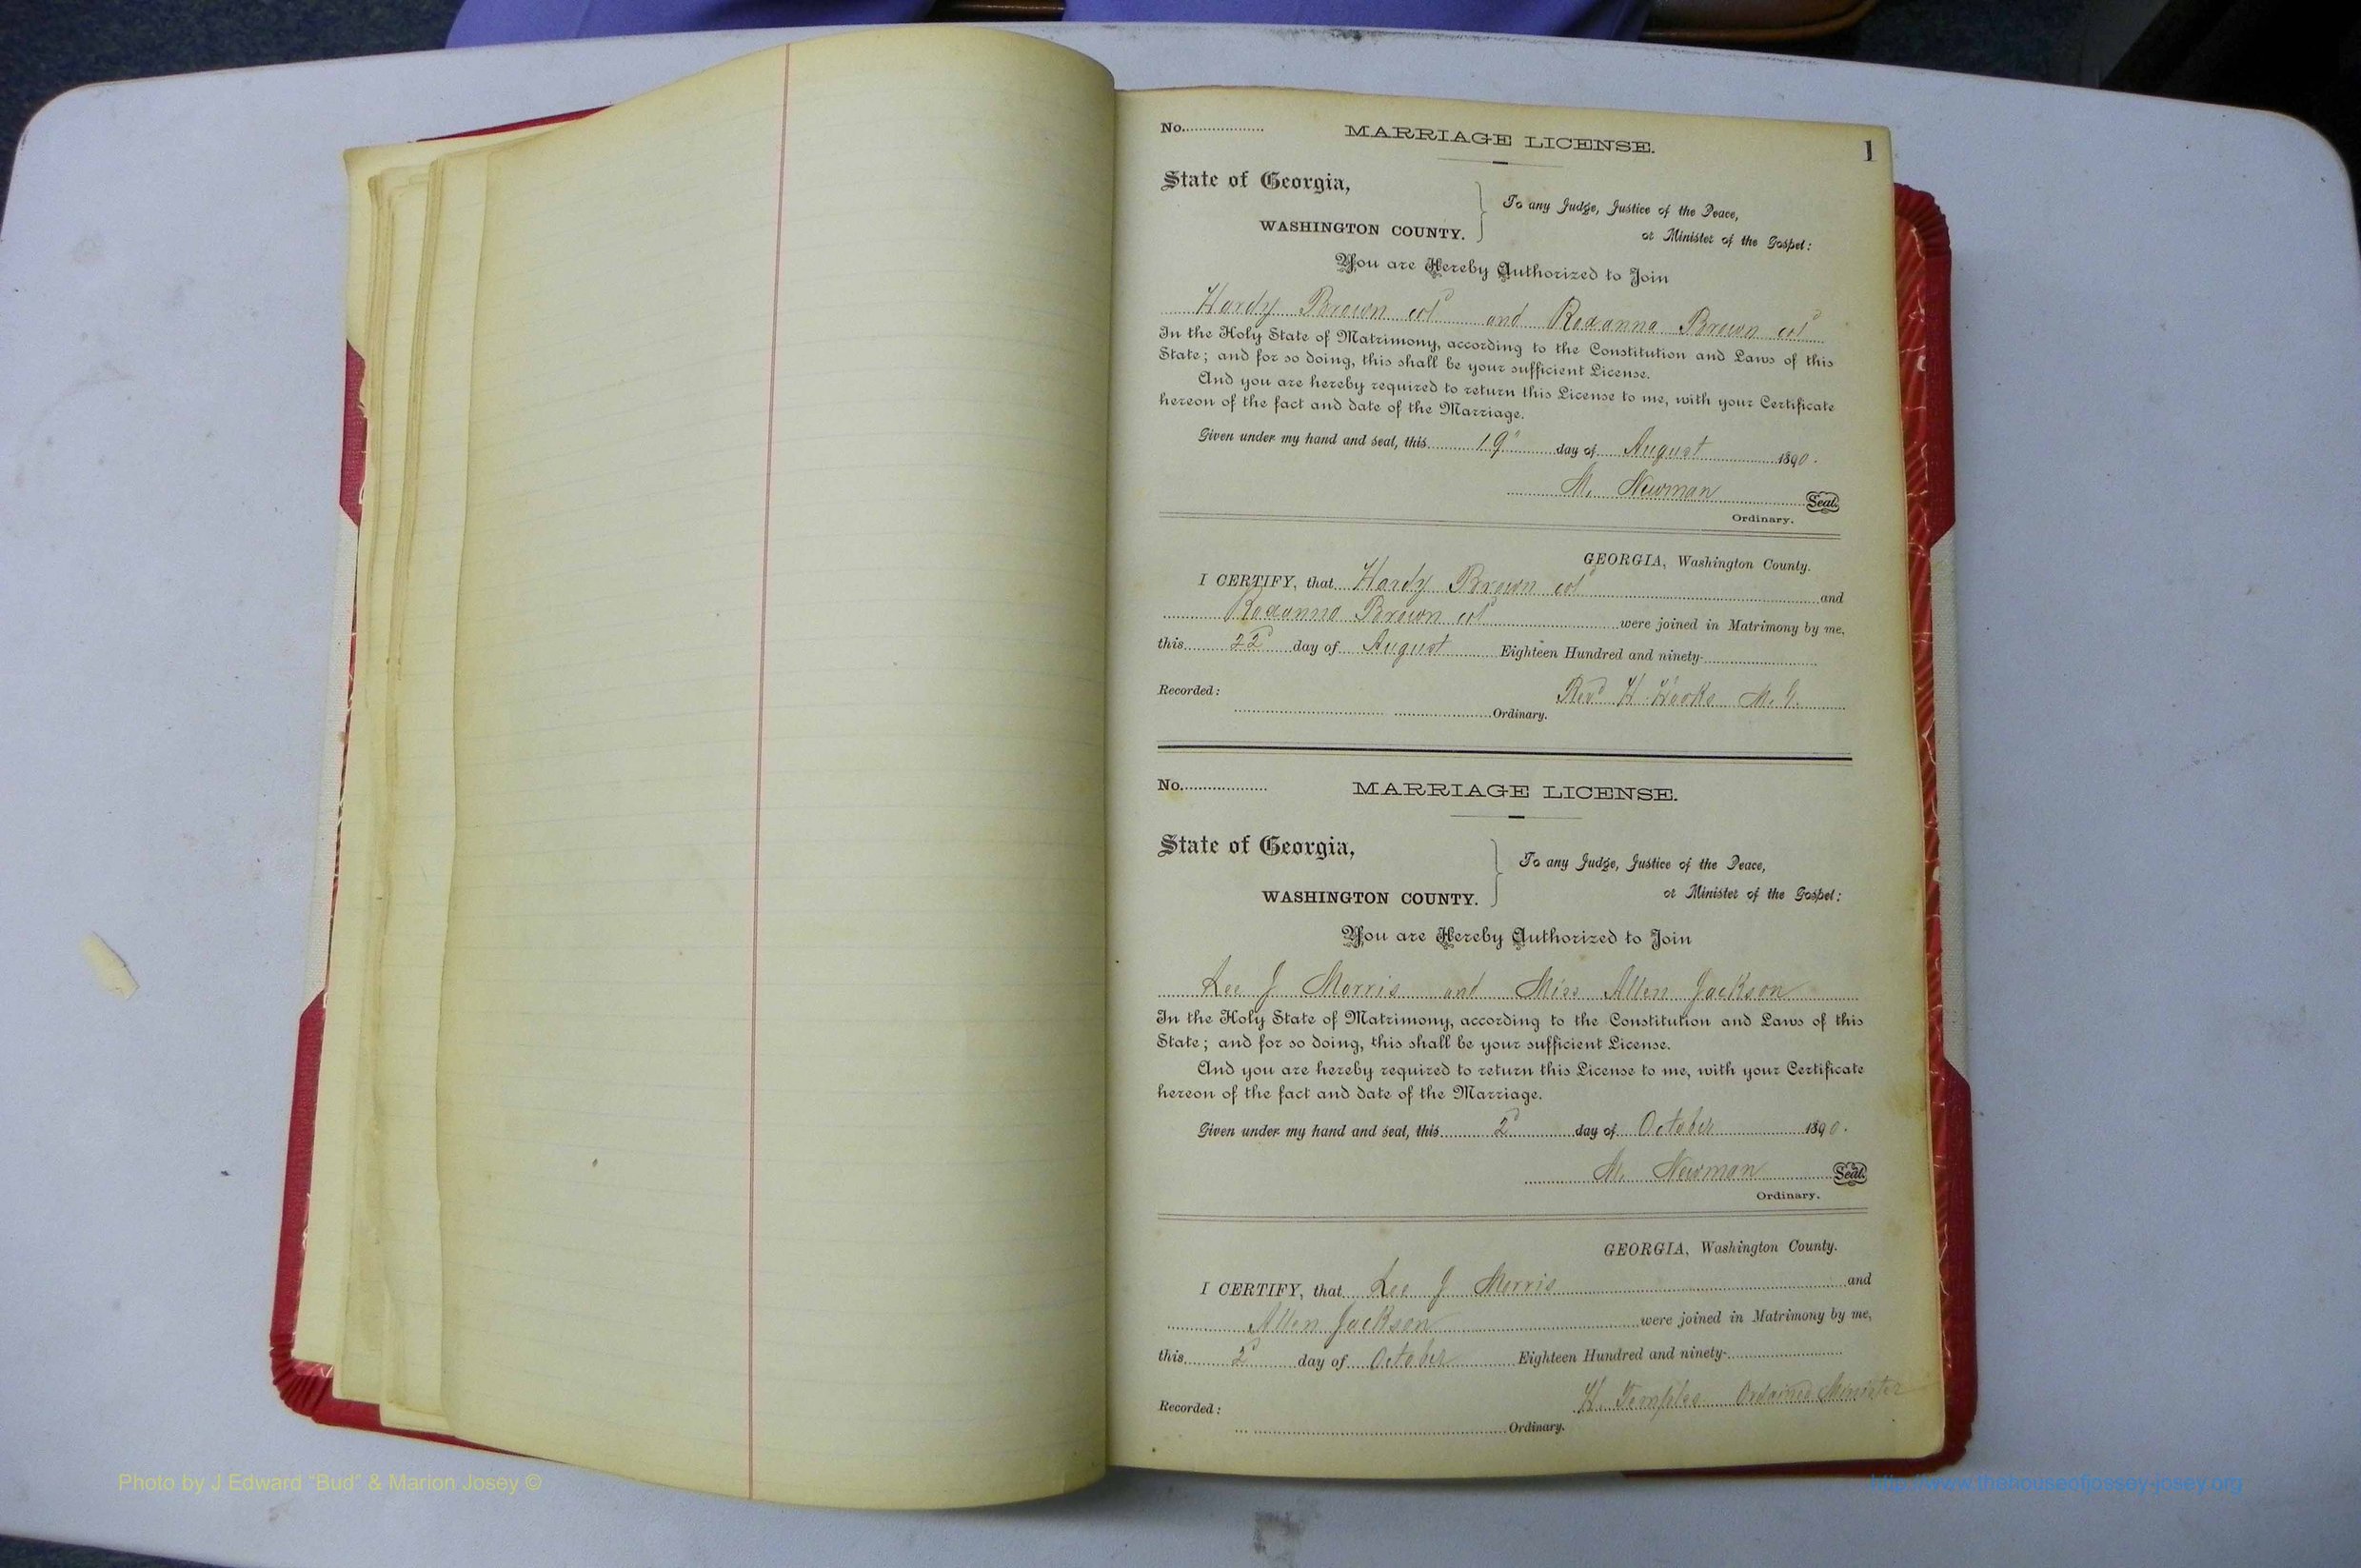 1
No.
MARRIAGE LICENSE.
State of Georgia,
WASHINGTON COUNTY.
To any Judge, Justice of the Peace,
or Minister of the Gospel:
You are Hereby Authorized to Join
Hardy Brown cold and Roxanna Brown cold
In the Holy State of Matrimony, according to the Constitution and Laws of this
State; and for so doing, this shall be your sufficient License.
And you are hereby required to return this License to me, with your Certificate
hereon of the fact and date of the Marriage.
Given under my hand and seal, this 19" day of August 1890.
M. Newman Seal.
Ordinary.
GEORGIA, Washington County.
I CERTIFY, that Hardy Brown cold and
Roxanna Brown cold were joined in Matrimony by me,
this 22d day of August Eighteen Hundred and ninety-
Revd H. Hooks M. G.
Recorded:
Ordinary.
No.
MARRIAGE LICENSE.
State of Georgia,
WASHINGTON COUNTY.
To any Judge, Justice of the Peace,
or Minister of the Gospel:
You are Hereby Authorized to Join
Lee J Morris and Miss Allen Jackson
In the Holy State of Matrimony, according to the Constitution and Laws of this
State; and for so doing, this shall be your sufficient License.
And you are hereby required to return this License to me, with your Certificate
hereon of the fact and date of the Marriage.
Given under my hand and seal, this 2d day of October 1890.
M. Newman Seal.
Ordinary.
GEORGIA, Washington County.
I CERTIFY, that Lee J Morris and
Allen Jackson were joined in Matrimony by me,
this 2d day of October Eighteen Hundred and ninety-
H. Temples Ordained Minister
Recorded:
Ordinary.
Photo by J Edward "Bud" & Marion Josey ©
http://www.thehouseofjossey-josey.org